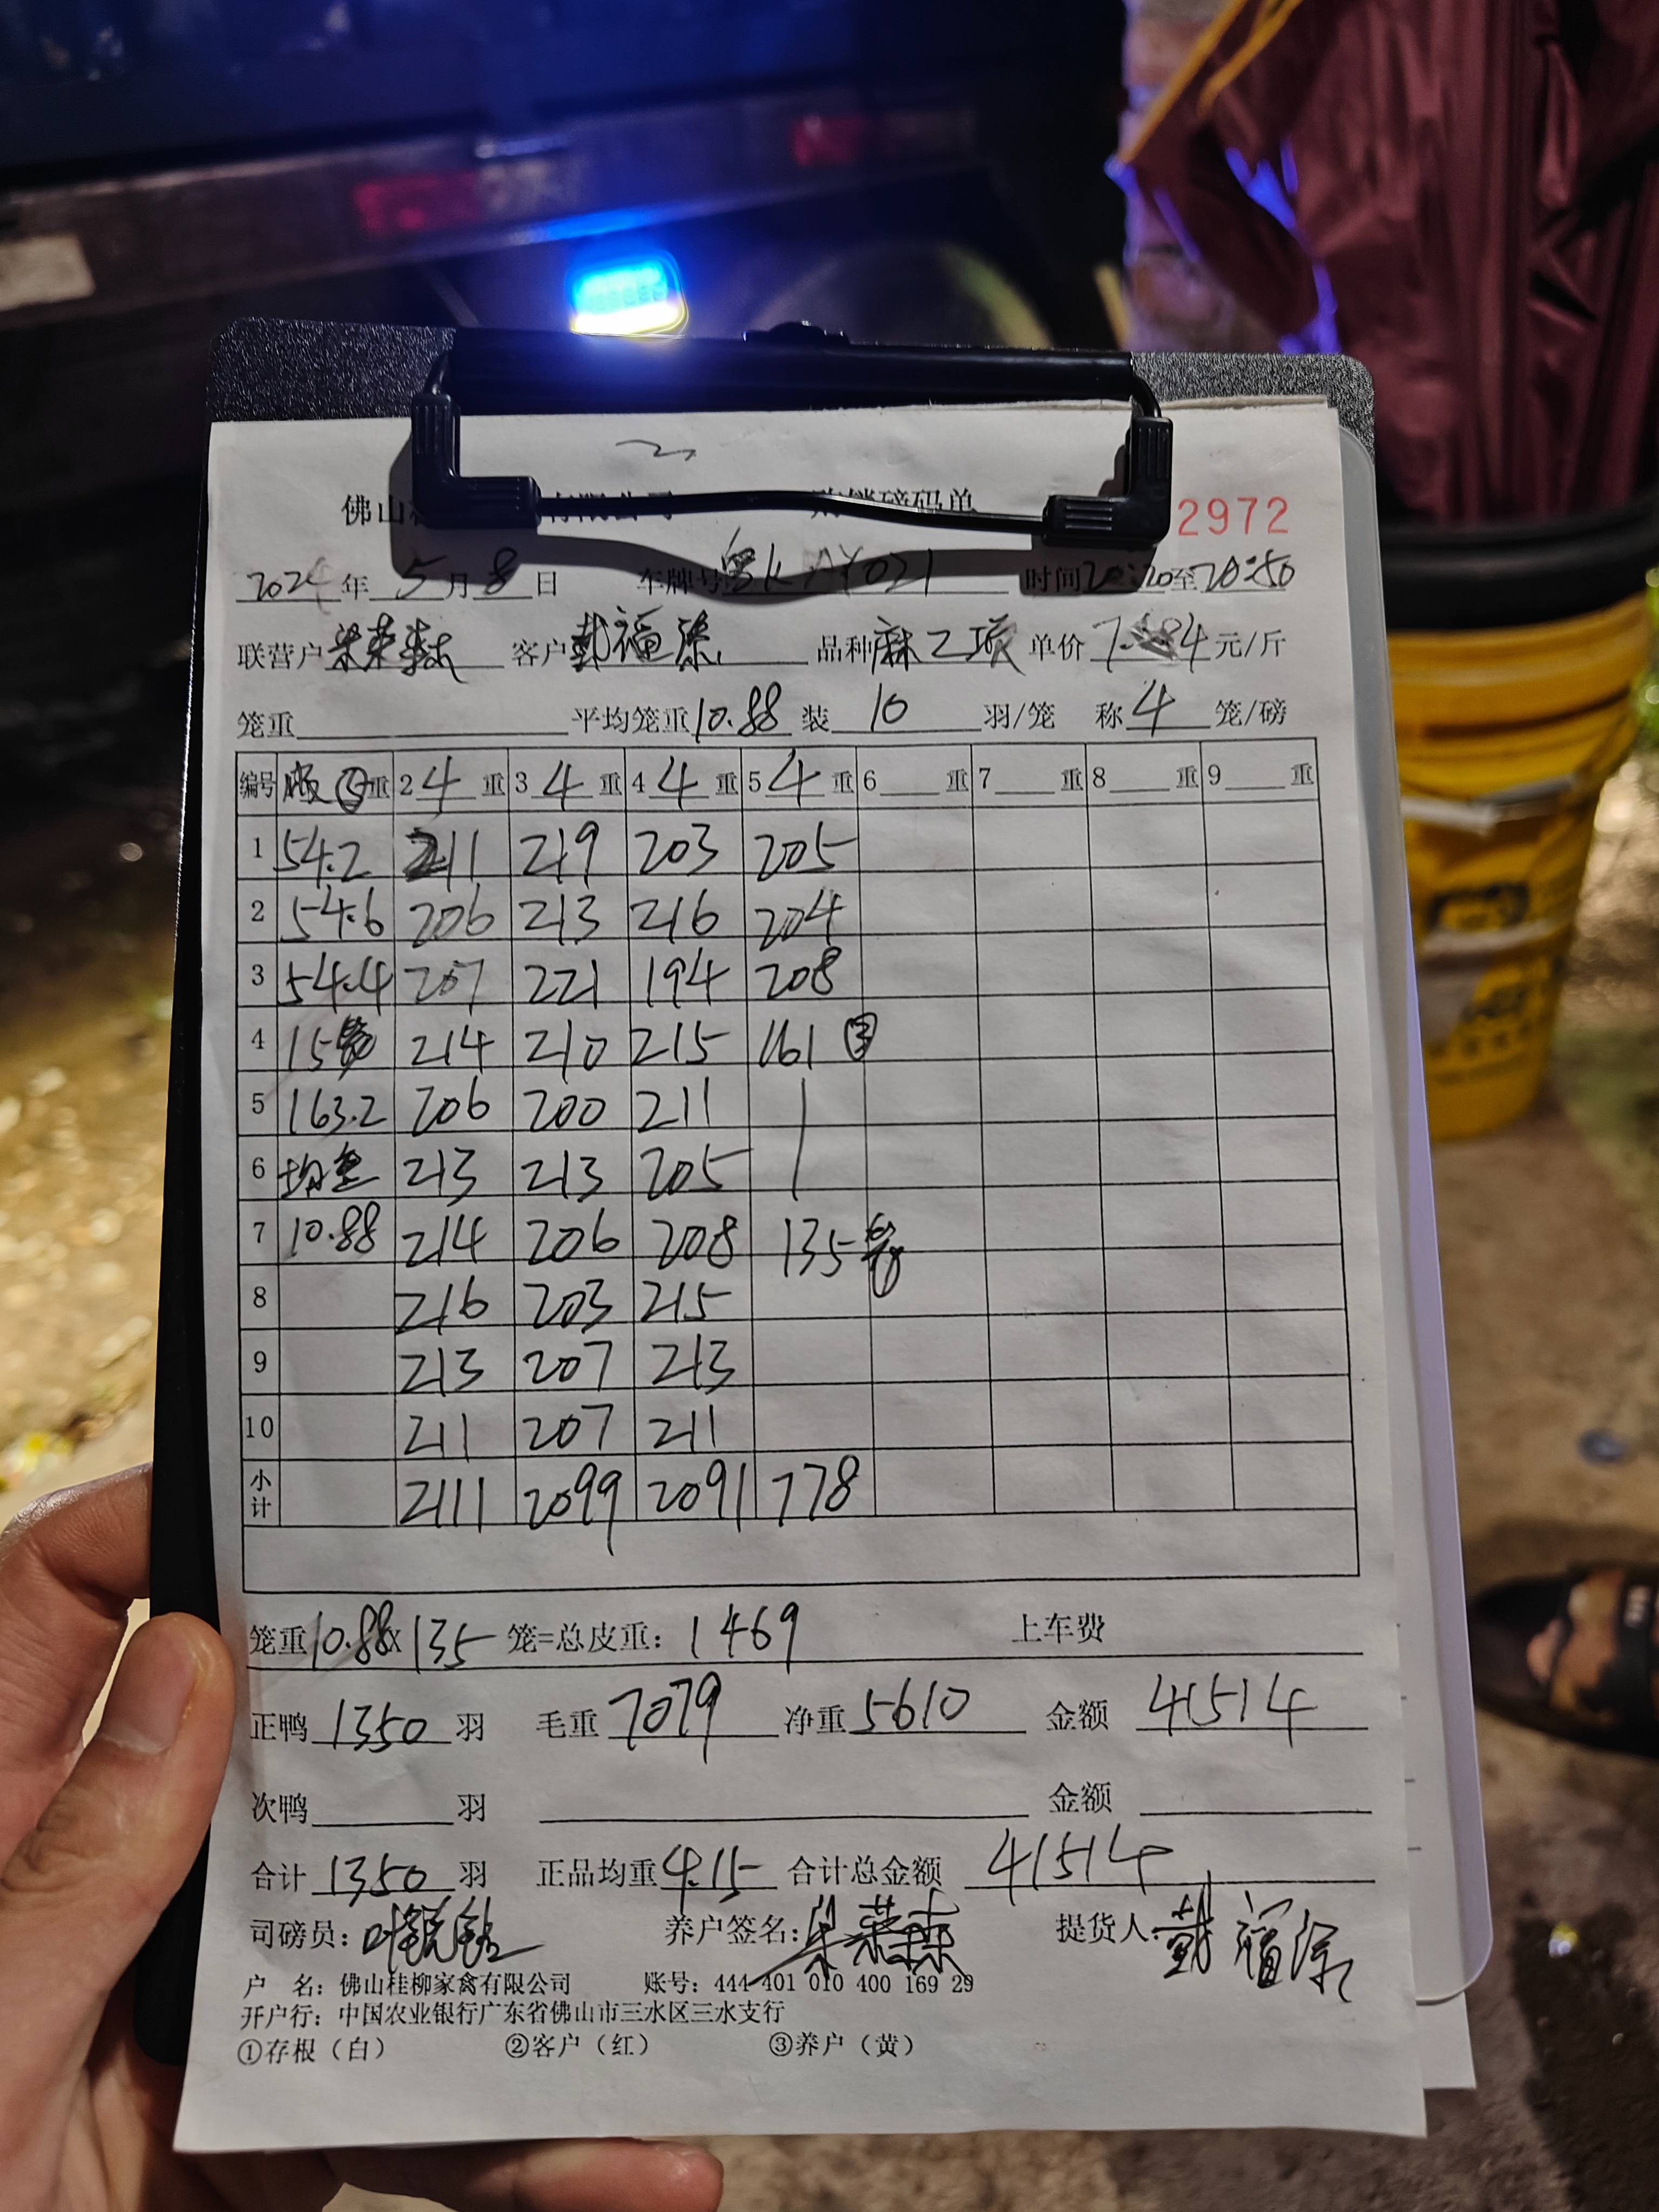 佛山桂 有限公司 购销磅码单 2972
2024年5月8日 车牌号粤KAY021 时间20:20至20:50
联营户梁荣森 客户戴福添 品种麻2项 单价7.4元/斤
笼重 平均笼重10.88 装10羽/笼 称4笼/磅
编号 ⑤重 2 4重 3 4重 4 4重 5 4重 6 重 7 重 8 重 9 重
1 54.2 211 219 203 205
2 54.6 206 213 216 204
3 54.4 207 221 194 208
4 15笼 214 210 215 161 ③
5 163.2 206 200 211
6 均重 213 213 205
7 10.88 214 206 208 135笼
8 216 203 215
9 213 207 213
10 211 207 211
小计 2111 2099 2091 778
笼重10.88X135笼=总皮重：1469 上车费
正鸭1350羽 毛重7079 净重5610 金额41514
次鸭 羽 金额
合计1350羽 正品均重4.15 合计总金额41514
司磅员： 养户签名：梁荣森 提货人 戴福添
户 名：佛山桂柳家禽有限公司 账号：444 401 010 400 169 29
开户行：中国农业银行广东省佛山市三水区三水支行
①存根（白） ②客户（红） ③养户（黄）